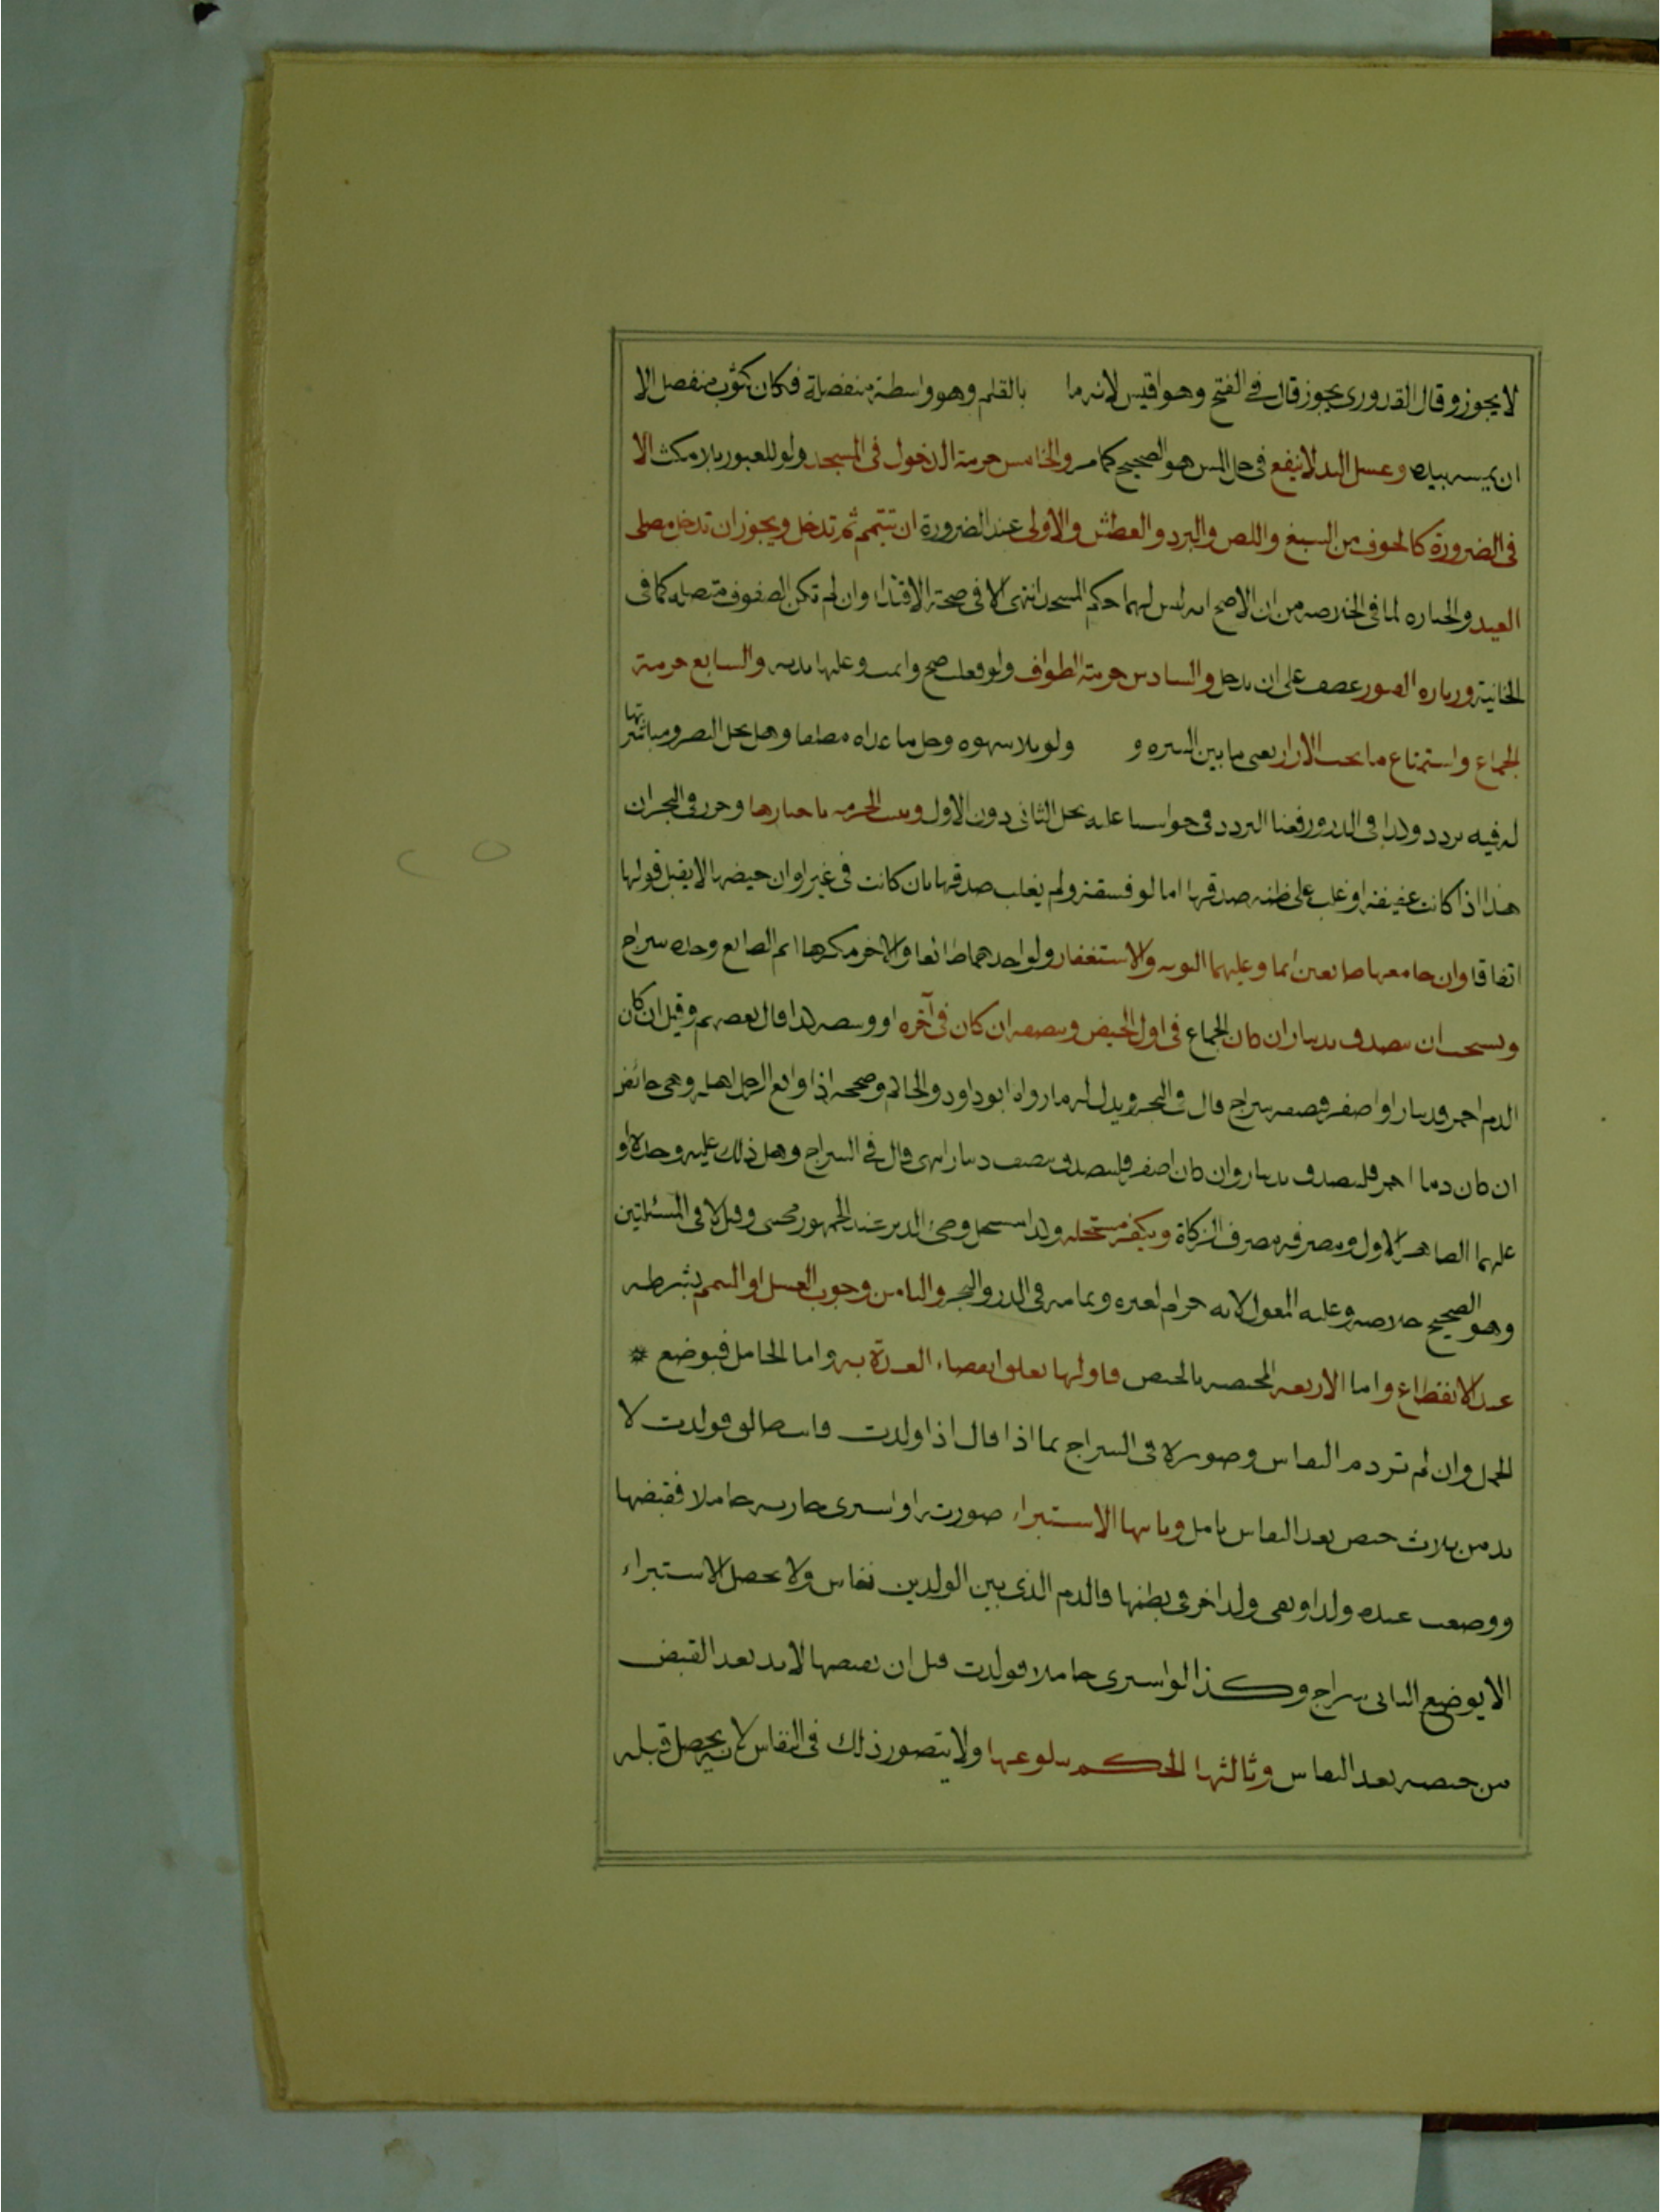 لا يجوز وقال القدورى يجوز قال فى الفتح وهو اقيس لانه ما بالقلم وهو واسطة منفصلة فكان كثوب منفصل الا
ان يمسه بيده وغسل اليد لا ينفع فى حل المس هو الصحيح كما مر والخامس حرمة الدخول فى المسجد ولو للعبور بلا مكث الا
فى الضرورة كالخوف من السبع واللص والبرد والعطش والاولى عند الضرورة ان تتيمم ثم تدخل ويجوز ان تدخل مصلى
العيد والجنازه لما فى الخلاصه من ان الاصح انه ليس لهما حكم المسجد انتهى الا فى صحة الاقتداء وان لم تكن الصفوف متصله كما فى
الخانية وزياره القبور عطف على ان تدخل والسادس حرمة الطواف ولو فعلت صح واثمت وعليها بدنه والسابع حرمة
الجماع واستمتاع ما تحت الازار يعنى ما بين السره و ولو بلا شهوه وحل ما عداه مطلقا وهل يحل النظر ومباشرتها
له فيه تردد وكذا فى الدرر ورفعنا التردد فى حواشينا عليه بحل الثانى دون الاول وتثبت الحرمه باخبارها وحرر فى البحر ان
هذا اذا كانت عفيفة او غلب على ظنه صدقها اما لو فسقة ولم يغلب صدقها بان كانت فى غير اوان حيضها لا يقبل قولها
اتفاقا وان جامعها طائعين اثما وعليهما التوبه والاستغفار ولو احدهما طائعا والاخر مكرها اثم الطايع وحده سراج
ويستحب ان يتصدق بدينار ان كان الجماع فى اول الحيض وبنصفه ان كان فى آخره او وسطه كذا قال بعضهم وقيل ان كان
الدم احمر فدينار او اصفر فنصفه سراج قال فى البحر ويدل له ما رواه ابو داود والحاكم وصححه اذا واقع الرجل اهله وهى حائض
ان كان دما احمر فليتصدق بدينار وان كان اصفر فليتصدق بنصف دينار انتهى قال فى السراج وهل ذلك عليه وحده او
عليهما الظاهر الاول ومصرفه مصرف الزكاة ويكفر مستحله وكذا مستحل وطئ الدبر عند الجمهور مجتبى وقيل لا فى المسئلتين
وهو الصحيح خلاصه وعليه المعول لانه حرام لغيره وتمامه فى الدرر والبحر والثامن وجوب الغسل او التيمم بشرطه
عند الانقطاع واما الاربعه المختصه بالحيض فاولها تعلق انقضاء العدة به واما الحامل فبوضع
الحمل وان لم تر دم النفاس وصوره فى السراج بما اذا قال اذا ولدت فانت طالق فولدت لا
بد من ثلاث حيض بعد النفاس كامل وثانيها الاستبراء صورته او اشترى جاريه حاملا فقبضها
ووضعت عنده ولدا وبقى ولد اخر فى بطنها فالدم الذى بين الولدين نفاس ولا يحصل الاستبراء
الا بوضع الثانى سراج وكذا لو اشترى حاملا فولدت قبل ان يقبضها لابد بعد القبض
من حيضه بعد النفاس وثالثها الحكم ببلوغها ولا يتصور ذلك فى النفاس لانه يحصل قبله